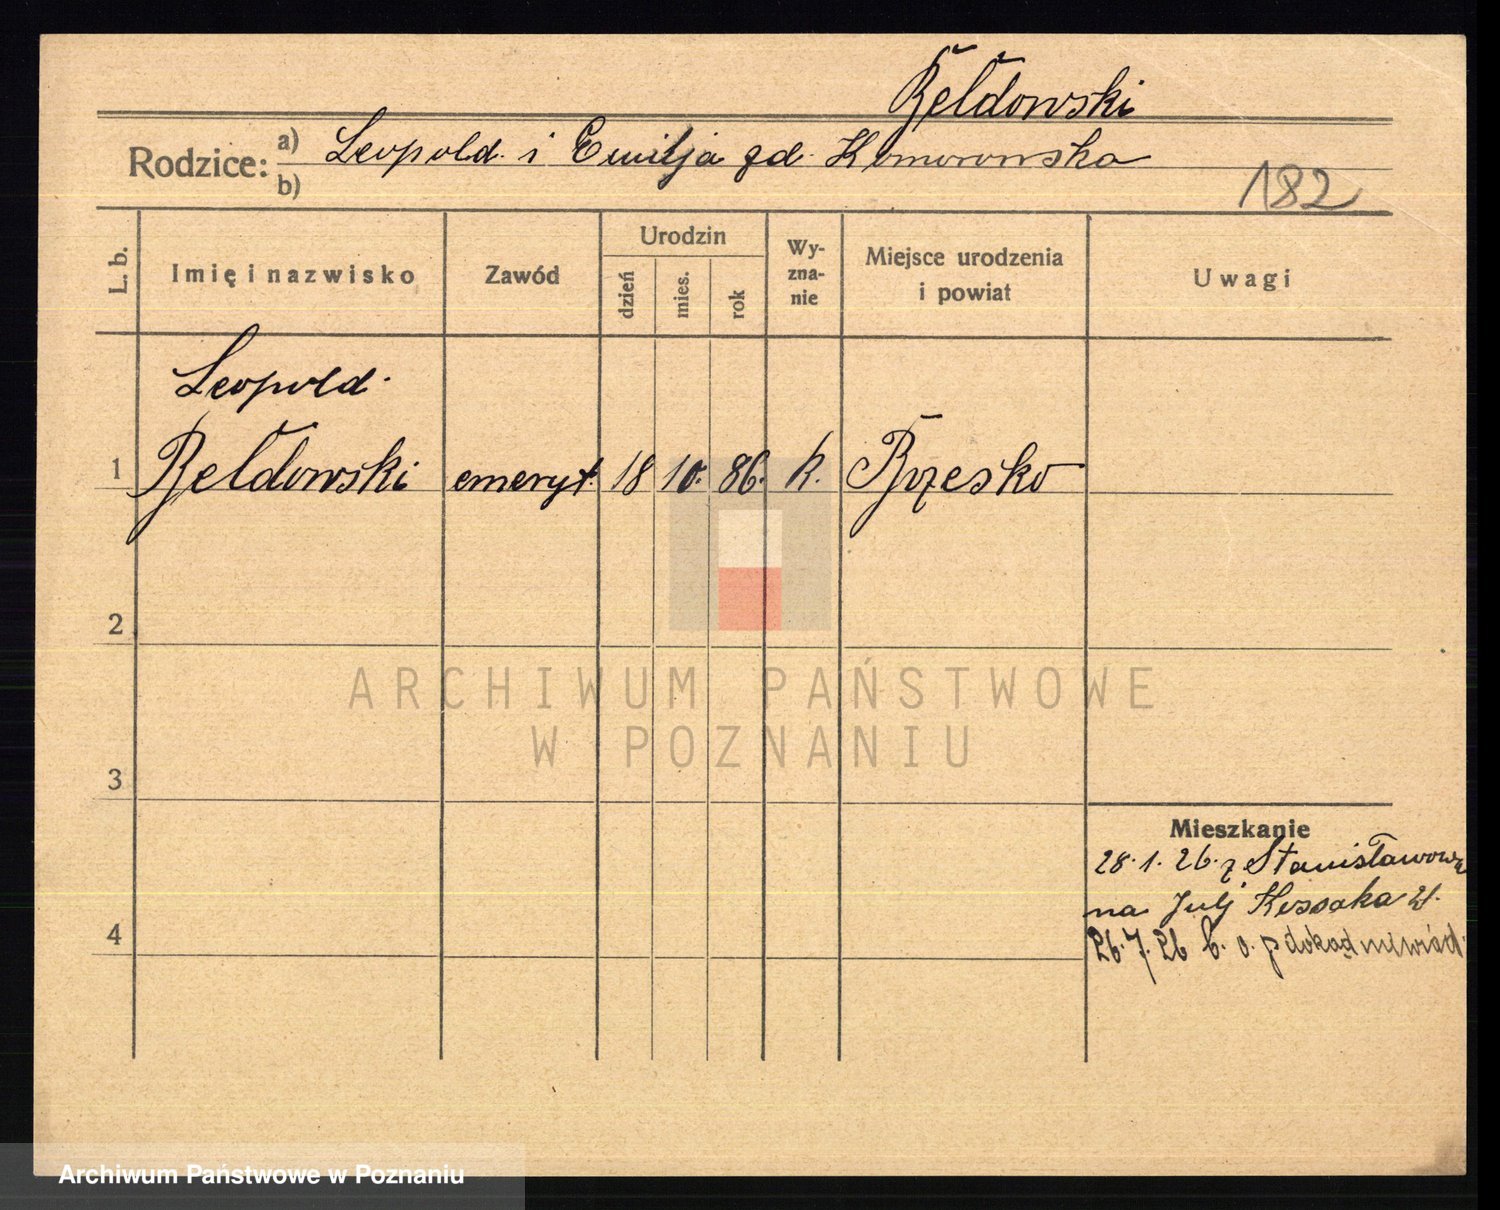 Bełdowski
Rodzice: a) Leopold i Emilja zd. Komorowska
b)
182
L. b. Imię i nazwisko Zawód Urodzin dzień mies. rok Wy-zna-nie Miejsce urodzenia i powiat Uwagi
Leopold
1 Bełdowski emeryt. 18 10. 86. k. Brzesko
2
ARCHIWUM PAŃSTWOWE
W POZNANIU
3
Mieszkanie
28.1.26. z Stanisławowa
na Julj Kossaka 21.
4
26.7.26 b. o.
Archiwum Państwowe w Poznaniu